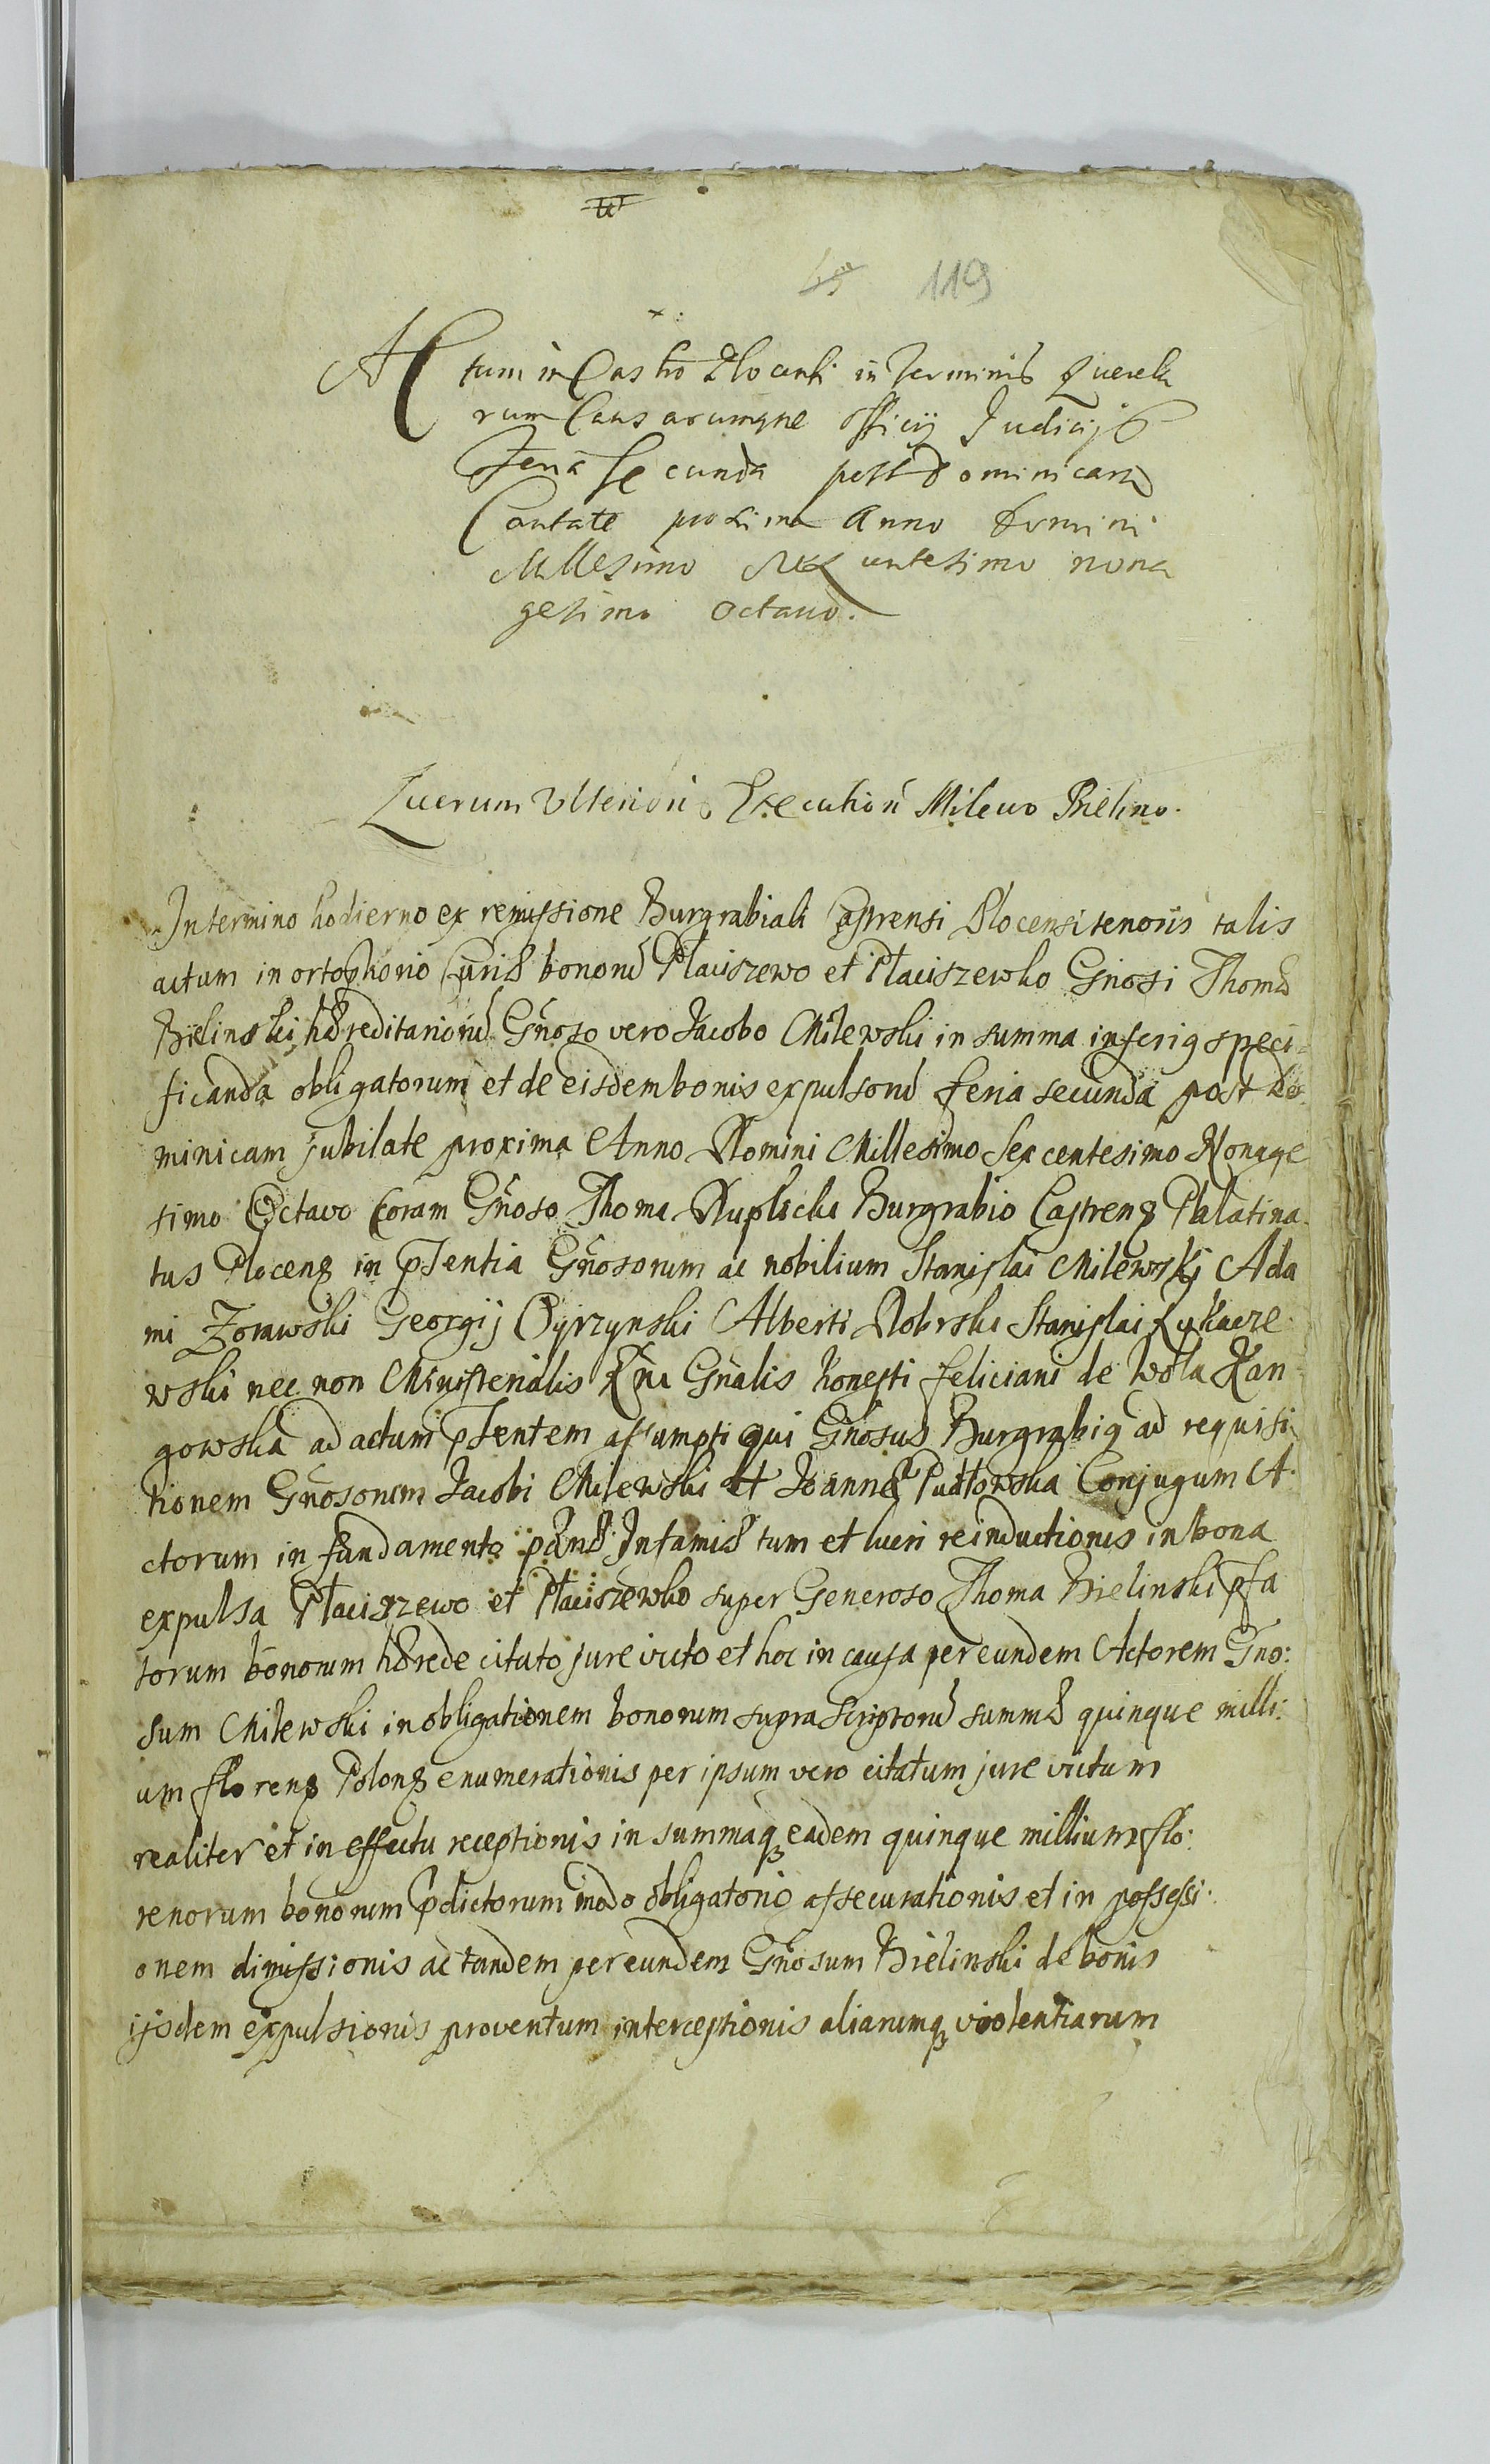 119
Actum in Castro Plocensi in Terminis Querela
rum Causarumque officij Judicij
Feria Secunda post Dominicam
Cantate proxima Anno Domini
Millesimo Sexcentesimo nona
gesimo octavo.
Lucrum Ulterioris Execution Milewo Bielino.
In termino hodierno ex remissione Burgrabiali Castrensi Plocensi tenoris talis
actum in bonorũ Płaciszewo et Płaciszewko Gñosi Thomæ
Bielinski hæreditariorũ Gñoso vero Jacobo Milewski in summa inferiq speci=
ficanda obligatorum et de eisdem bonis expulsorũ feria secunda post Do
minicam jubilate proxima Anno Domini Millesimo Sexcentesimo Nonage
simo Octavo Coram Gñoso Thoma Burgrabio Castrens Palatina
tus Plocens in pñsentia Gñosorum ac nobilium Stanislai Milewski Ada
mi Zorawski Georgij Alberti Stanislai
wski nec non Ministerialis Gñalis honesti feliciani de Wola
gowska ad actum pñsentem assumpti qui Gñosus Burgrabiq ad requisi
tionem Gñosorum Jacobi Milewski et Joannæ Conjugum A
ctorum in fundamento pænæ Infamiæ tum et lucri reinductionis in bona
expulsa Płaciszewo et Płaciszewko super Generoso Thoma Bielinski pfa
torum bonorum hærede citato jure victo et hoc in causa per eundem Actorem Gno:
sum Milewski in obligationem bonorum supra scriptorũ summæ quinque milli:
um florens Polons enumerationis per ipsum vero citatum jure victum
realiter et in effectu receptionis in summaq eadem quinque millium flo:
renorum bonorum pdictorum modo obligatorio assecurationis et in possessi:
onem dimissionis ac tandem per eundem Gñosum Bielinski de bonis
ijsdem expulsionis proventum interceptionis aliarumq violentiarum